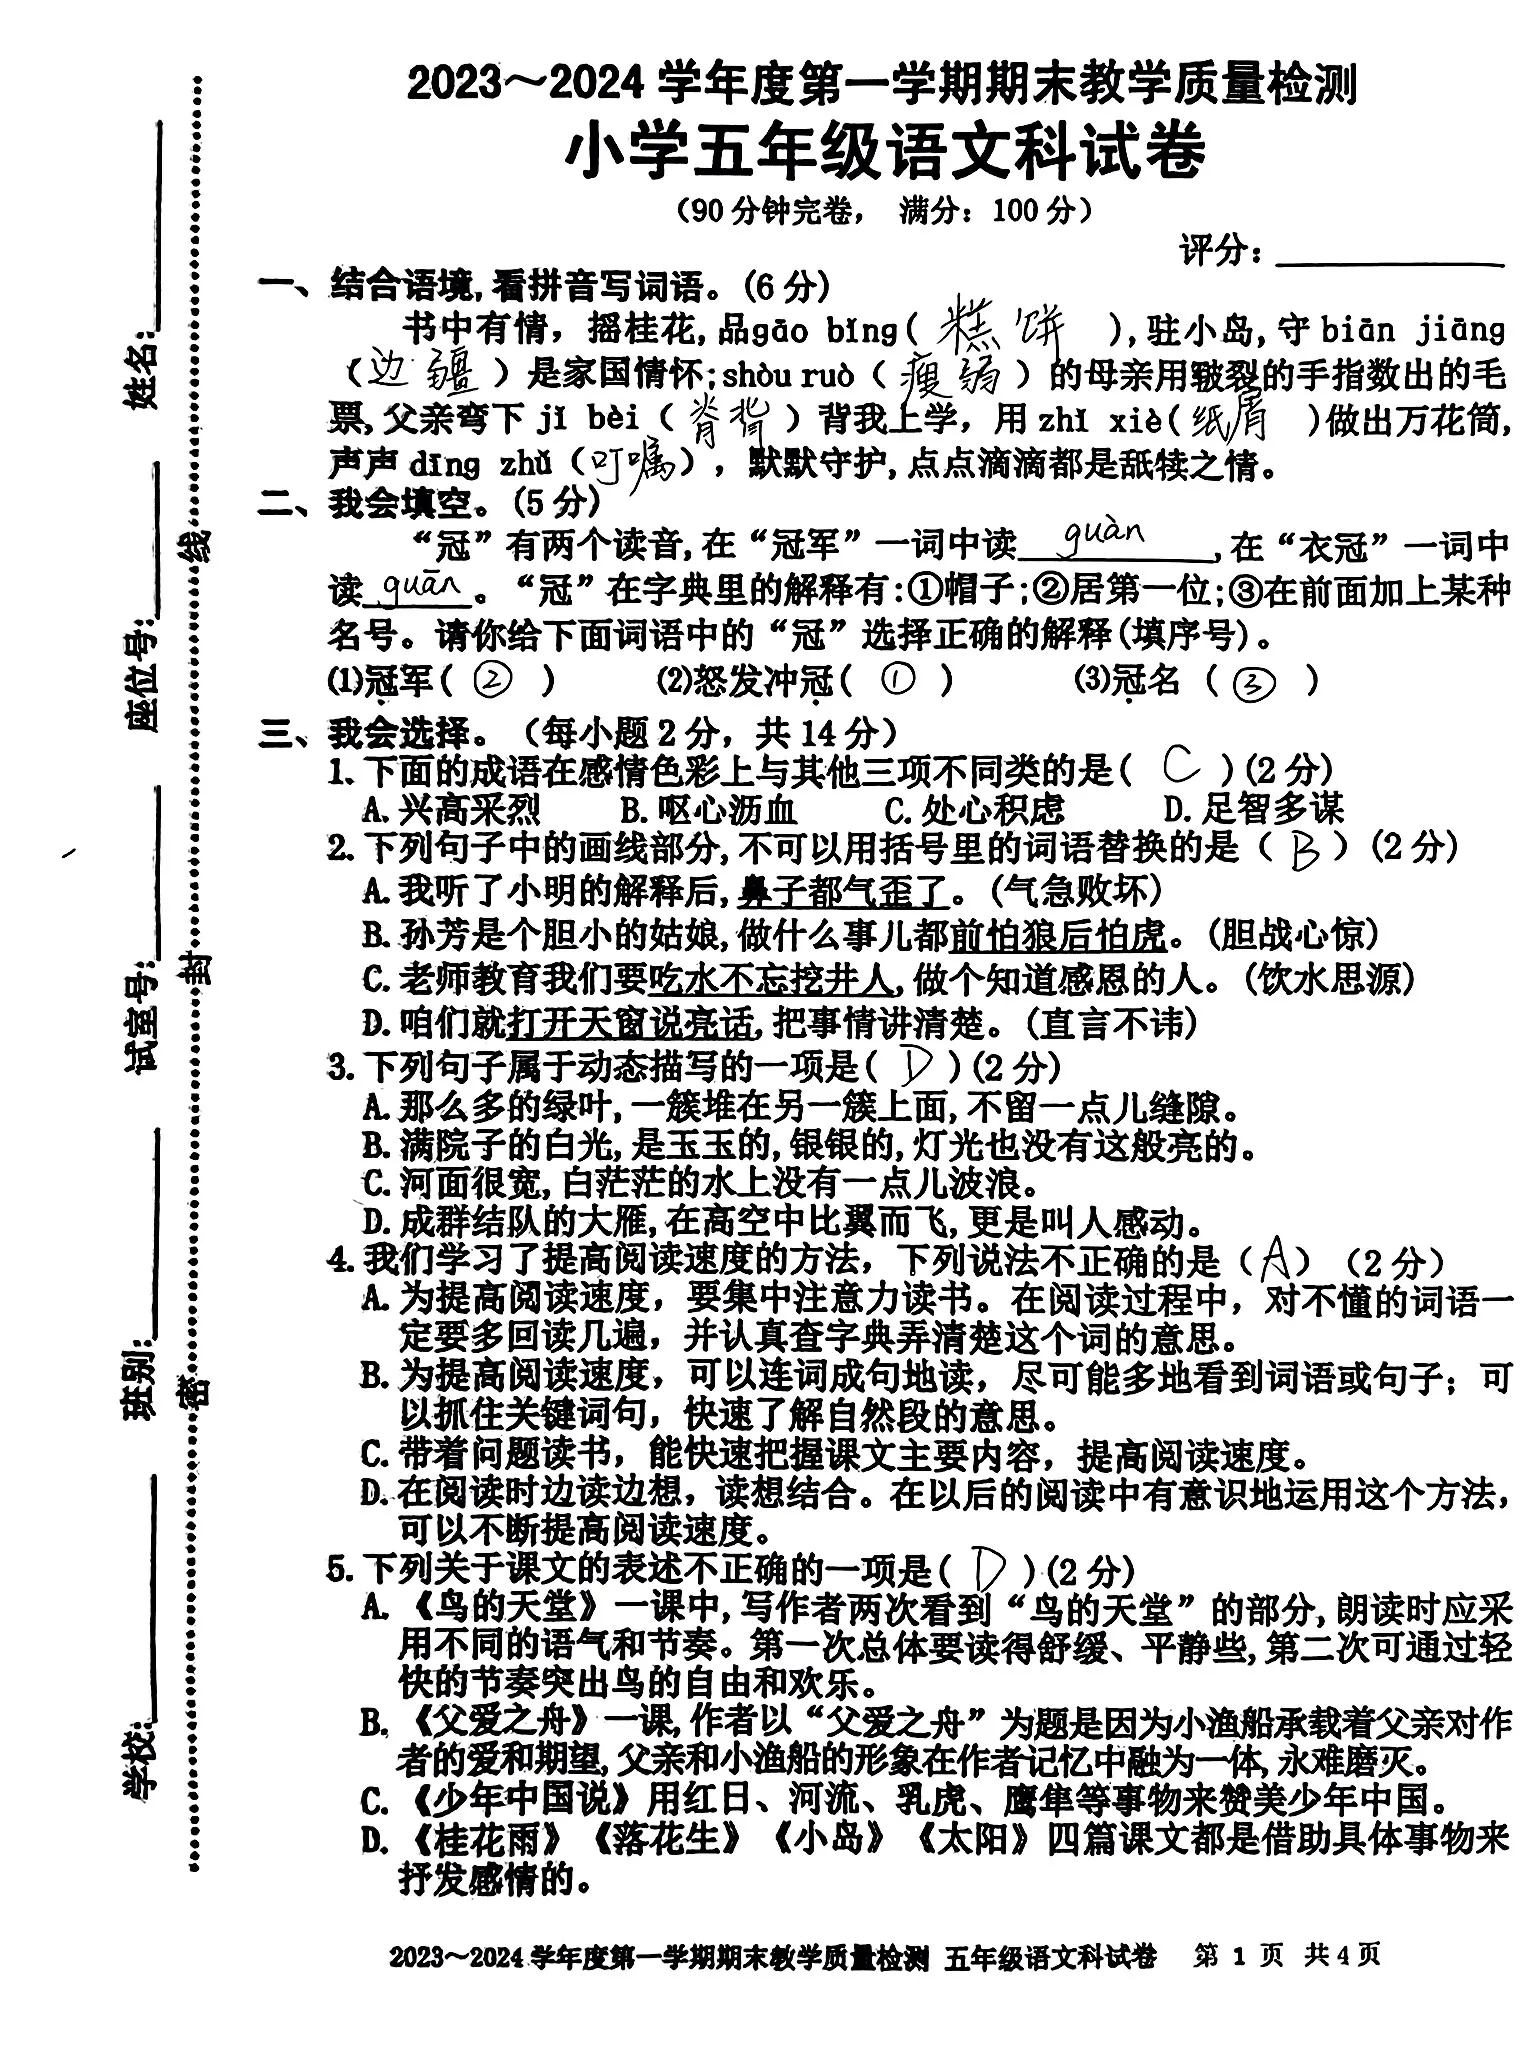 2023～2024 学年度第一学期期末教学质量检测
小学五年级语文科试卷
（90 分钟完卷， 满分：100 分）
评分：
一、结合语境,看拼音写词语。(6 分)
书中有情，摇桂花,品gāo bǐng( 糕饼 ),驻小岛,守 biān jiāng
（边疆）是家国情怀;shòu ruò（瘦弱）的母亲用皲裂的手指数出的毛
票,父亲弯下 jǐ bèi（脊背）背我上学，用 zhǐ xiè(纸屑 )做出万花筒,
声声 dīng zhǔ（叮嘱），默默守护,点点滴滴都是舐犊之情。
二、我会填空。(5 分)
“冠”有两个读音,在“冠军”一词中读 guàn ,在“衣冠”一词中
读 guān 。“冠”在字典里的解释有:①帽子;②居第一位;③在前面加上某种
名号。请你给下面词语中的“冠”选择正确的解释(填序号)。
⑴冠军( ② ) ⑵怒发冲冠( ① ) ⑶冠名 ( ③ )
三、我会选择。（每小题 2 分，共 14 分）
1. 下面的成语在感情色彩上与其他三项不同类的是( C )(2 分)
A. 兴高采烈 B. 呕心沥血 C. 处心积虑 D. 足智多谋
2. 下列句子中的画线部分,不可以用括号里的词语替换的是（ B ）(2 分)
A. 我听了小明的解释后,鼻子都气歪了。(气急败坏)
B. 孙芳是个胆小的姑娘,做什么事儿都前怕狼后怕虎。(胆战心惊)
C. 老师教育我们要吃水不忘挖井人,做个知道感恩的人。(饮水思源)
D. 咱们就打开天窗说亮话,把事情讲清楚。(直言不讳)
3. 下列句子属于动态描写的一项是( D )(2 分)
A. 那么多的绿叶,一簇堆在另一簇上面,不留一点儿缝隙。
B. 满院子的白光,是玉玉的,银银的,灯光也没有这般亮的。
C. 河面很宽,白茫茫的水上没有一点儿波浪。
D. 成群结队的大雁,在高空中比翼而飞,更是叫人感动。
4. 我们学习了提高阅读速度的方法，下列说法不正确的是（A）（2 分）
A. 为提高阅读速度，要集中注意力读书。在阅读过程中，对不懂的词语一
定要多回读几遍，并认真查字典弄清楚这个词的意思。
B. 为提高阅读速度，可以连词成句地读，尽可能多地看到词语或句子；可
以抓住关键词句，快速了解自然段的意思。
C. 带着问题读书，能快速把握课文主要内容，提高阅读速度。
D. 在阅读时边读边想，读想结合。在以后的阅读中有意识地运用这个方法，
可以不断提高阅读速度。
5. 下列关于课文的表述不正确的一项是( D )(2 分)
A. 《鸟的天堂》一课中,写作者两次看到“鸟的天堂”的部分,朗读时应采
用不同的语气和节奏。第一次总体要读得舒缓、平静些,第二次可通过轻
快的节奏突出鸟的自由和欢乐。
B. 《父爱之舟》一课,作者以“父爱之舟”为题是因为小渔船承载着父亲对作
者的爱和期望,父亲和小渔船的形象在作者记忆中融为一体,永难磨灭。
C. 《少年中国说》用红日、河流、乳虎、鹰隼等事物来赞美少年中国。
D. 《桂花雨》《落花生》《小岛》《太阳》四篇课文都是借助具体事物来
抒发感情的。
2023～2024 学年度第一学期期末教学质量检测 五年级语文科试卷 第 1 页 共 4 页
学校: 班别: 试室号: 座位号: 姓名:
密 封 线